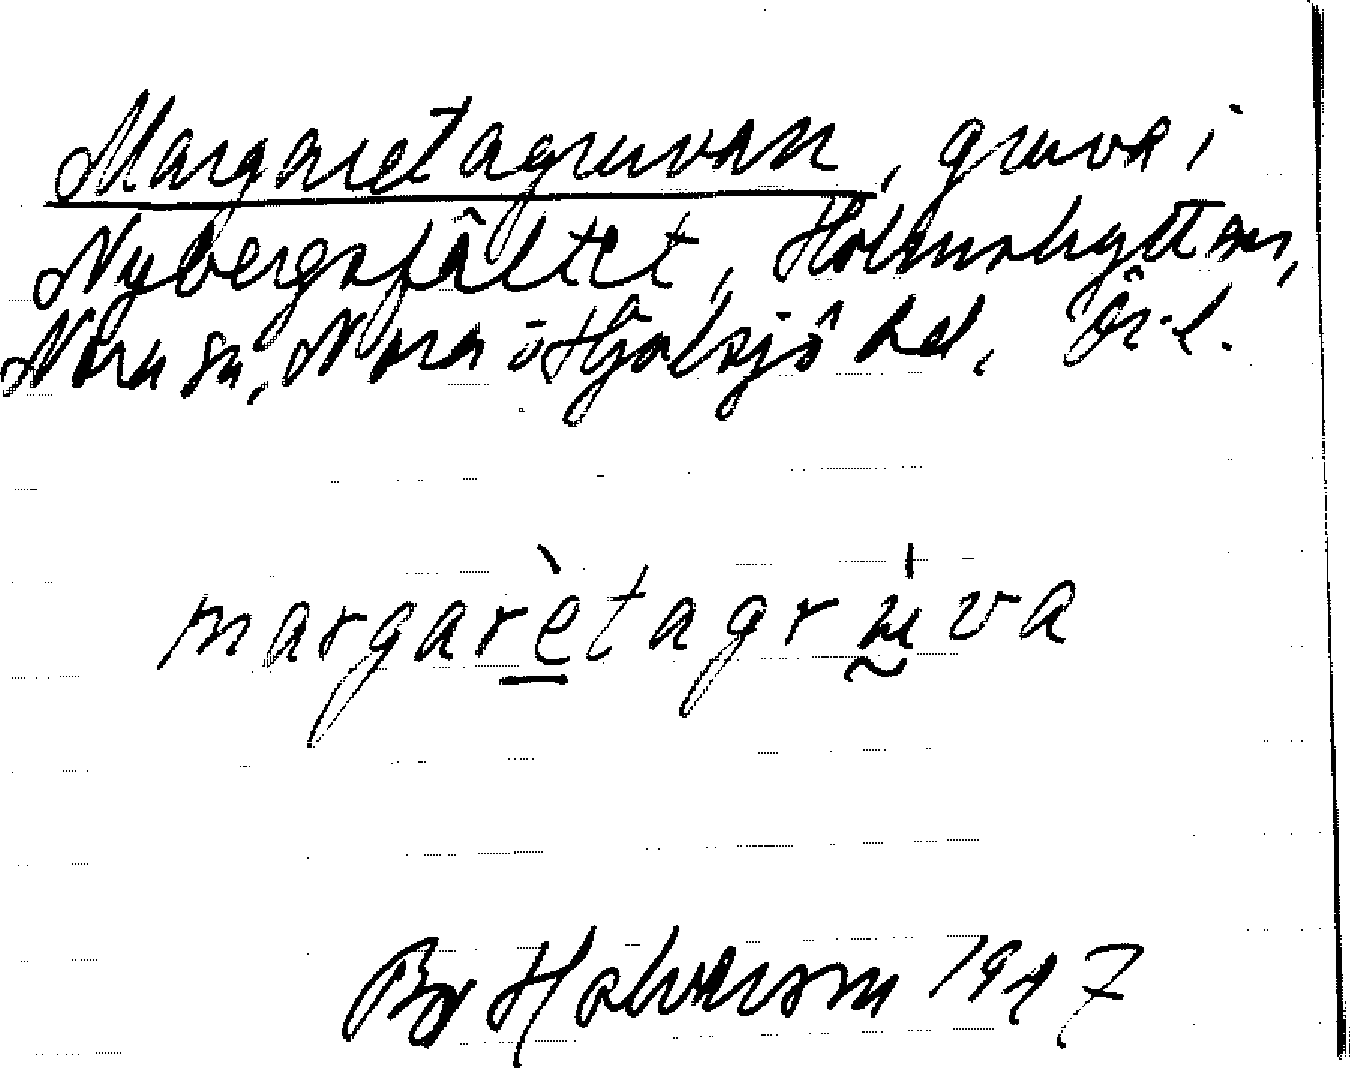 Margaretagruvan, gruva i
Nybergsfältet, Holmshyttan,
Nora sn, Nora o Hjulsjö hd, Ör. l.
margarètagrúva
Br Halvarson 1947